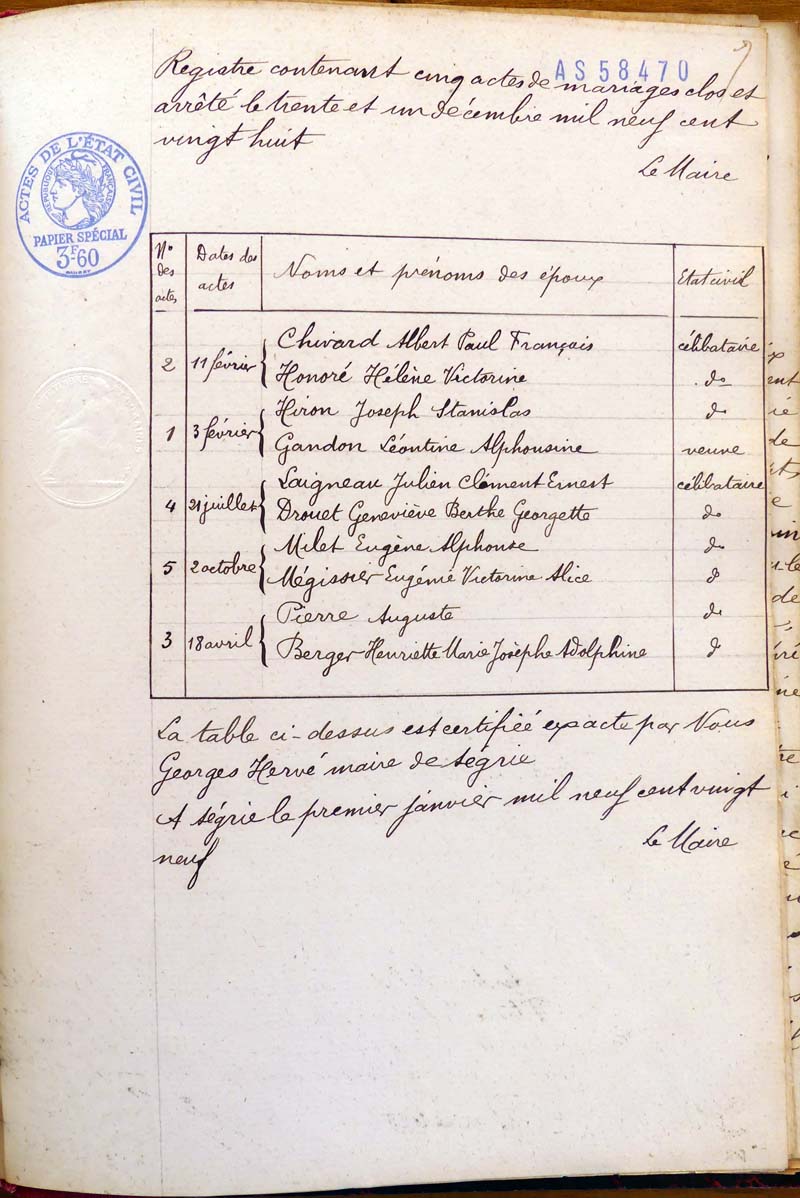 AS58470
Registre contenant cinq actes de mariages clos et
arrêté le trente et un décembre mil neuf cent
vingt huit
Le Maire
ACTES DE L'ÉTAT CIVIL
RÉPUBLIQUE FRANÇAISE
PAPIER SPÉCIAL
3F60
N° des actes | Dates des actes | Noms et prénoms des époux | Etat civil
2 | 11 février | Chivard Albert Paul François | célibataire
Honoré Hélène Victorine | do
1 | 3 février | Hiron Joseph Stanislas | do
Gandon Léontine Alphonsine | veuve
4 | 21 juillet | Laigneau Julien Clément Ernest | célibataire
Drouet Geneviève Berthe Georgette | do
5 | 2 octobre | Milet Eugène Alphonse | do
Mégissier Eugénie Victorine Alice | d
3 | 18 avril | Pierre Auguste | do
Berger Henriette Marie Josèphe Adolphine | d
La table ci-dessus est certifiée exacte par Nous
Georges Hervé maire de Ségrie
A Ségrie le premier janvier mil neuf cent vingt
neuf
Le Maire